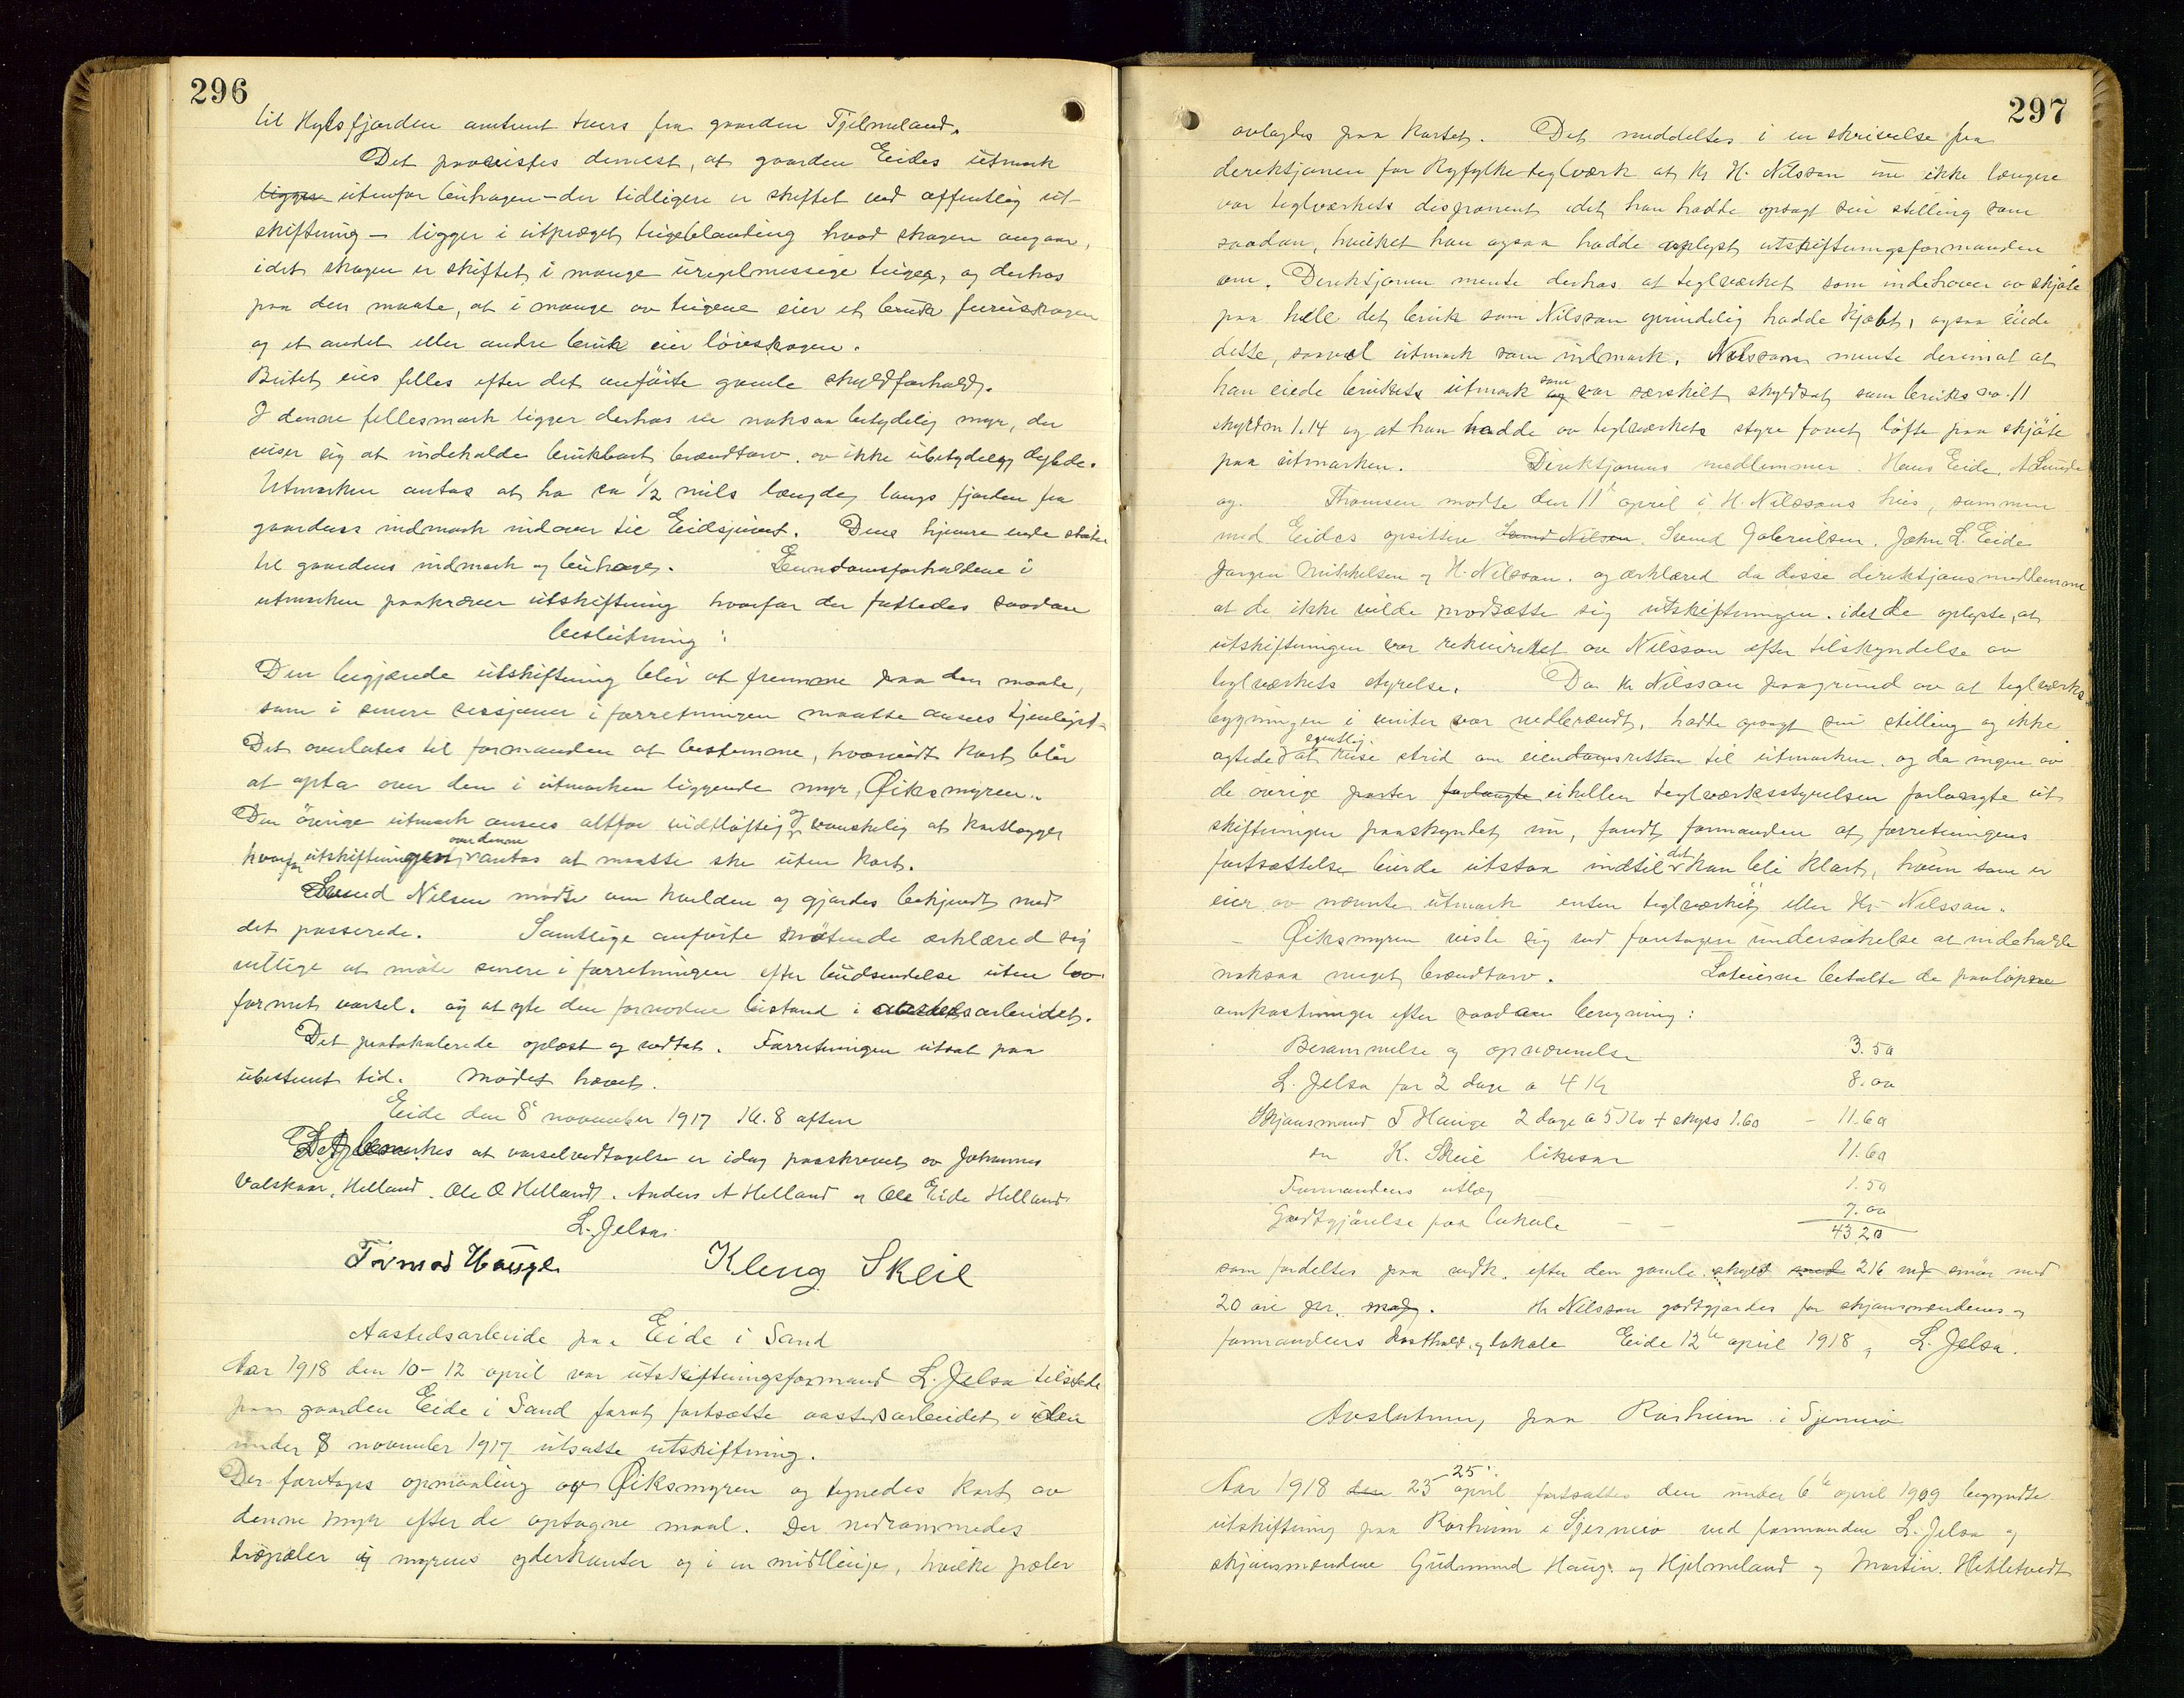 296
til Hylsfjorden omtrent tvers fra gaarden Tjelmeland.
Det paavistes dernest, at gaarden Eides utmark
ligger utenfor buhagen – der tidligere er skiftet ved offentlig ut-
skiftning – ligger i utpræget teigeblanding hvad skogen angaar,
idet skogen er skiftet i mange uregelmessige teiger, og derhos
paa den maate, at i mange av teigene eier et bruk furuskogen
og et andet eller andre bruk eier løvskogen.
Beitet eies felles efter det anførte gamle skyldforhold.
I denne fellesmark ligger derhos en noksaa betydelig myr, der
viser sig at indeholde brukbart brændtorv av ikke ubetydelig dybde.
Utmarken antas at ha ca 1/2 mils længde langs fjorden fra
gaardens indmark indover til Eidsjuvet. Dens hjemre ende støter
til gaardens indmark og buhage. Eiendomsforholdene i
utmarken paakræver utskiftning hvorfor der fattedes saadan
beslutning:
Den begjærede utskiftning blir at fremme paa den maate,
som i senere sessjoner i forretningen maatte ansees tjenligst.
Det overlates til formanden at bestemme, hvorvidt kart blir
at opta over den i utmarken liggende myr, Øiksmyren.
Den øvrige utmark ansees altfor vidtløftig og vanskelig at kartlægge,
hvorfor utskiftningen over denne antas at maatte ske uten kart.
Svend Nilsen møtte om kvelden og gjordes bekjendt med
det passerede. Samtlige anførte møtende erklæred sig
villige at møte senere i forretningen efter budsendelse uten lov-
formet varsel. og at yte den fornødne bistand i aastedsarbeidet.
Det protokolerede oplæst og vedtat. Forretningen utsat paa
ubestemt tid. Mødet hævet.
Eide den 8de november 1917 kl. 8 aften
Det bemerkes at varselvedtagelse er idag paaskrevet av Johannes
Valskaar, Helland. Ole O Helland. Anders A Helland og Ole Eide Helland.
L. Jelsa.
Tormod Hauge Kleng Skeie
Aastedsarbeide paa Eide i Sand
Aar 1918 den 10–12 april var utskiftningsformand L. Jelsa tilstede
paa gaarden Eide i Sand forat fortsætte aastedsarbeidet i den
under 8 november 1917 utsatte utskiftning.
Der foretoges opmaaling av Øiksmyren og tegnedes kart av
denne myr efter de optagne maal. Der nedrammedes
træpæler i myrens yderkanter og i en midtlinje, hvilke pæler
297
avlagdes paa kartet. Det meddeltes i en skrivelse fra
direktjonen for Ryfylke teglværk at Hr H. Nilsson nu ikke længere
var teglværkets disponent idet han hadde opsagt sin stilling som
saadan, hvilket han ogsaa hadde oplyst utskiftningsformanden
om. Direktjonen mente derhos at teglværket som indehaver av skjøte
paa hele det bruk som Nilsson oprindelig hadde kjøbt, ogsaa eiede
dette, saavel utmark som indmark. Nilsson mente derimot at
han eiede brukets utmark og som var særskilt skyldsat som bruks no. 11
skyldm 1.14 og at han hadde av teglværkets styre faaet løfte paa skjøte
paa utmarken. Direktjonens medlemmer. Hans Eide, A Lunde
og Thomsen møtte den 11te april i H. Nilssons hus, sammen
med Eides opsittere Svend Nilsen. Svend Gabrielsen. John L. Eide
Jørgen Mikkelsen og H. Nilsson. og erklæred da disse direktjonsmedlemmer
at de ikke vilde modsætte sig utskiftningen. idet de oplyste, at
utskiftningen var rekvireret av Nilsson efter tilskyndelse av
teglværkets styrelse. Da Hr Nilsson paagrund av at teglverks
bygningen i vinter var nedbrændt, hadde opsagt sin stilling og ikke
agtede egentlig at reise strid om eiendomsretten til utmarken. og da ingen av
de øvrige parter forlangte eiheller teglværksstyrelsen forlangte ut-
skiftningen paaskyndet nu, fandt formanden at forretningens
fortsættelse burde utstaa indtil det kan bli klart, hvem som er
eier av nævnte utmark enten teglværket eller Hr Nilsson.
Øiksmyren viste sig ved foretagen undersøkelse at indeholde
noksaa meget brændtorv. Loteierne betalte de paaløpne
omkostninger efter saadan beregning:
Berammelse og opnævnelse 3.50
L. Jelsa for 2 dage a 4 Kr 8.00
Skjønsmand T Hauge 2 dage a 5 Kr + skyss 1.60 – 11.60
do K. Skeie likesaa 11.60
Formandens utlæg 1.50
Godtgjørelse for lokale – – 7.00
43.20
som fordeltes paa vedk. efter den gamle skyld smed 216 mrk smør med
20 øre pr. mrk. Hr Nilsson godtgjordes for skjønsmændenes og
formandens kosthold og lokale Eide 12te april 1918, L. Jelsa.
Avslutning paa Rørheim i Sjernerø
Aar 1918 den 23–25. april fortsattes den under 6te april 1909 begyndte
utskiftning paa Rørheim i Sjernerø ved formanden L. Jelsa og
skjønsmændene Gudmund Haug. og Hjelmeland og Martin Hetletvedt